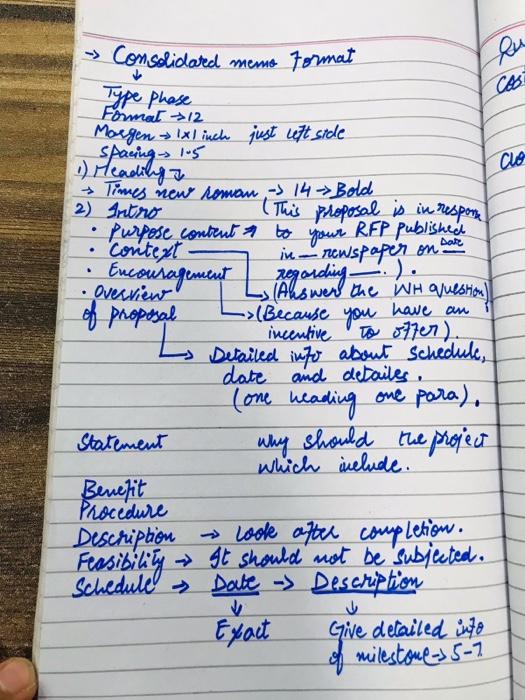 → Consolidated memo Format
↓
Type phase
Format → 12
Margen → 1x1 inch just left side
Spacing → 1.5
1) Heading ↴
→ Times new roman → 14 → Bold
2) Intro (This proposal is in respon
• Purpose content → to your RFP published
in — newspaper on Date
regarding —.).
• Context → (Answer the WH question)
• Encouragement → (Because you have an
incentive to offer)
• Overview
of proposal → Detailed info about schedule,
date and detailes.
(one heading one para).
Statement why should the project
which include.
Benefit
Procedure
Description → Look after completion.
Feasibility → It should not be subjected.
Schedule → Date → Description
↓ ↓
Exact Give detailed info
of milestone → 5-7